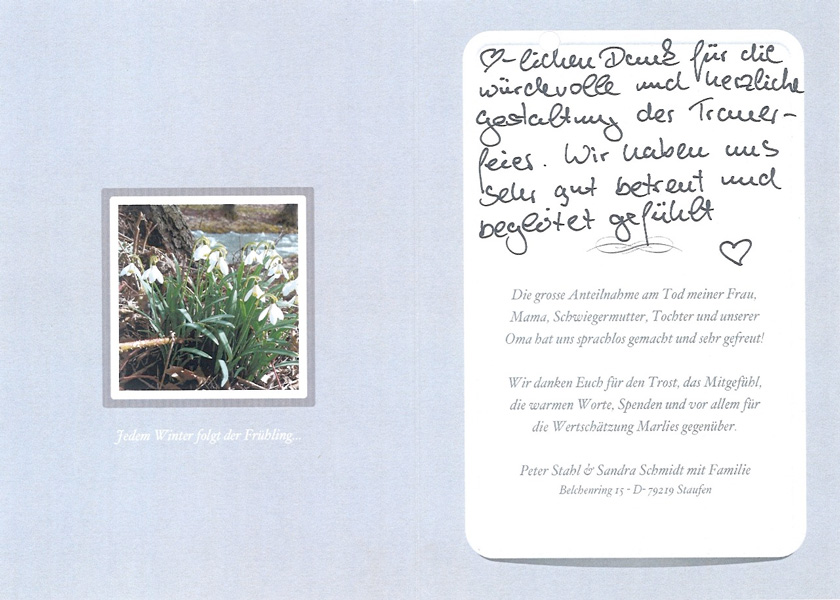 Jedem Winter folgt der Frühling...
♡-lichen Dank für die
würdevolle und herzliche
gestaltung der Trauer-
feier. Wir haben uns
sehr gut betreut und
begleitet gefühlt
♡
Die grosse Anteilnahme am Tod meiner Frau,
Mama, Schwiegermutter, Tochter und unserer
Oma hat uns sprachlos gemacht und sehr gefreut!
Wir danken Euch für den Trost, das Mitgefühl,
die warmen Worte, Spenden und vor allem für
die Wertschätzung Marlies gegenüber.
Peter Stahl & Sandra Schmidt mit Familie
Belchenring 15 - D- 79219 Staufen